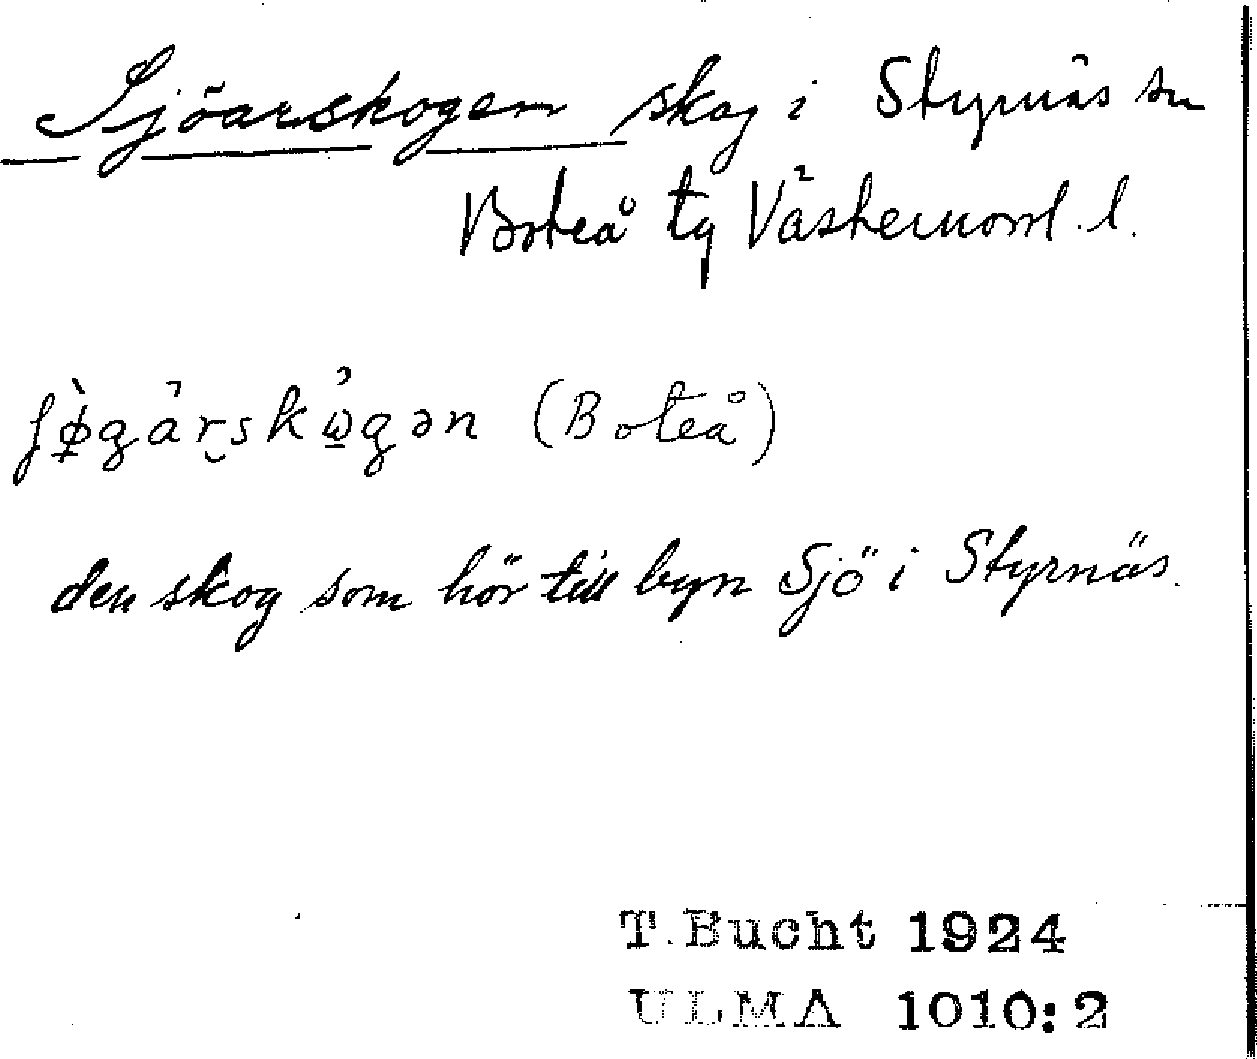 Sjöarskogen skog i Styrnäs sn
Boteå tg Västernorrl. l.
(Boteå)
den skog som hör till byn Sjö i Styrnäs.
T. Bucht 1924
ULMA 1010:2